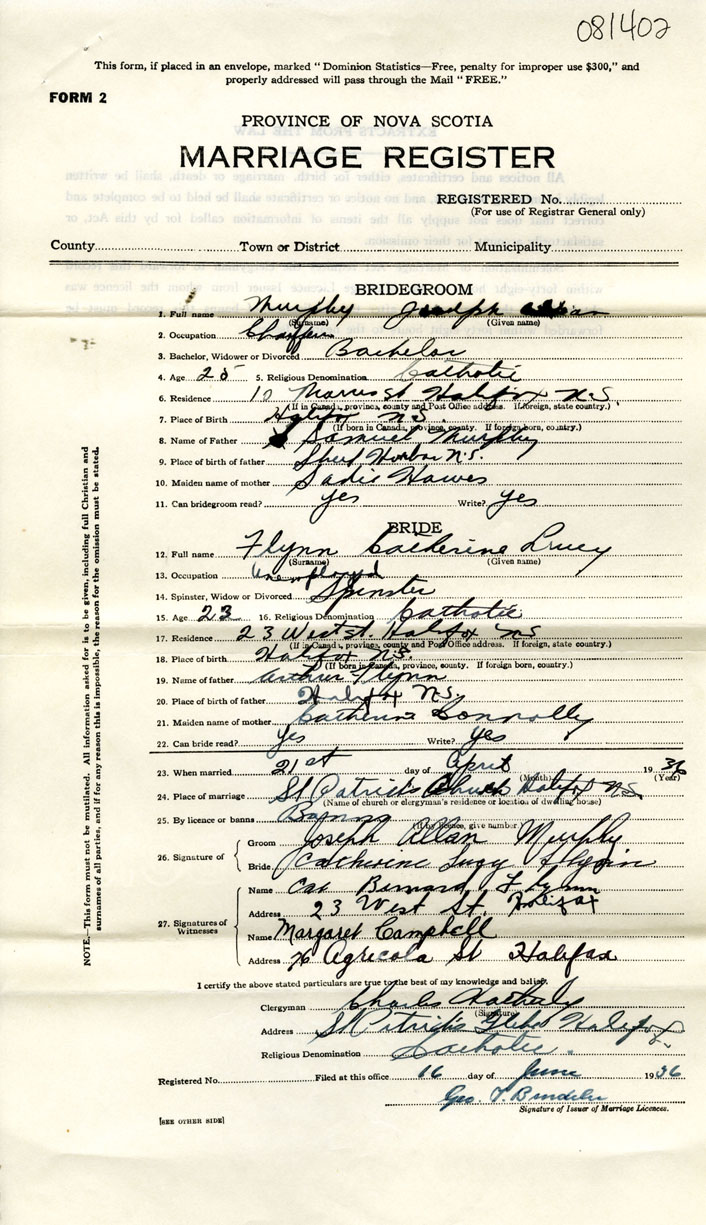 081402
This form, if placed in an envelope, marked "Dominion Statistics—Free, penalty for improper use $300," and
properly addressed will pass through the Mail "FREE."
FORM 2
PROVINCE OF NOVA SCOTIA
MARRIAGE REGISTER
REGISTERED No.
(For use of Registrar General only)
County Town or District Municipality
BRIDEGROOM
1. Full name Murphy Joseph
(Surname) (Given name)
2. Occupation
3. Bachelor, Widower or Divorced Bachelor
4. Age 25 5. Religious Denomination Catholic
6. Residence St Halifax N.S.
(If in Canada, province, county and Post Office address. If foreign, state country.)
7. Place of Birth Halifax N.S.
(If born in Canada, province, county. If foreign born, country.)
8. Name of Father Samuel Murphy
9. Place of birth of father Harbor N.S.
10. Maiden name of mother Sadie Hawes
11. Can bridegroom read? yes Write? yes
BRIDE
12. Full name Flynn Catherine Lucy
(Surname) (Given name)
13. Occupation unemployed
14. Spinster, Widow or Divorced Spinster
15. Age 23 16. Religious Denomination Catholic
17. Residence 23 West St. Halifax NS
(If in Canada, province, county and Post Office address. If foreign, state country.)
18. Place of birth Halifax N.S.
(If born in Canada, province, county. If foreign born, country.)
19. Name of father Arthur Flynn
20. Place of birth of father Halifax N.S.
21. Maiden name of mother Catherine Connolly
22. Can bride read? yes Write? yes
23. When married 21st day of April 1936
(Month) (Year)
24. Place of marriage St Patricks Church Halifax N.S.
(Name of church or clergyman's residence or location of dwelling house)
25. By licence or banns Banns
(If by licence, give number)
26. Signature of Groom Joseph Allan Murphy
Bride Catherine Lucy Flynn
27. Signatures of Witnesses
Name Bernard Flynn
Address 23 West St. Halifax
Name Margaret Campbell
Address 76 Agricola St Halifax
I certify the above stated particulars are true to the best of my knowledge and belief.
Clergyman Charles
(Signature)
Address St Patrick's Glebe Halifax
Religious Denomination Catholic.
Registered No. Filed at this office 16 day of June 1936
Geo. T.
Signature of Issuer of Marriage Licences.
[SEE OTHER SIDE]
NOTE.—This form must not be mutilated. All information asked for is to be given, including full Christian and
surnames of all parties, and if for any reason this is impossible, the reason for the omission must be stated.